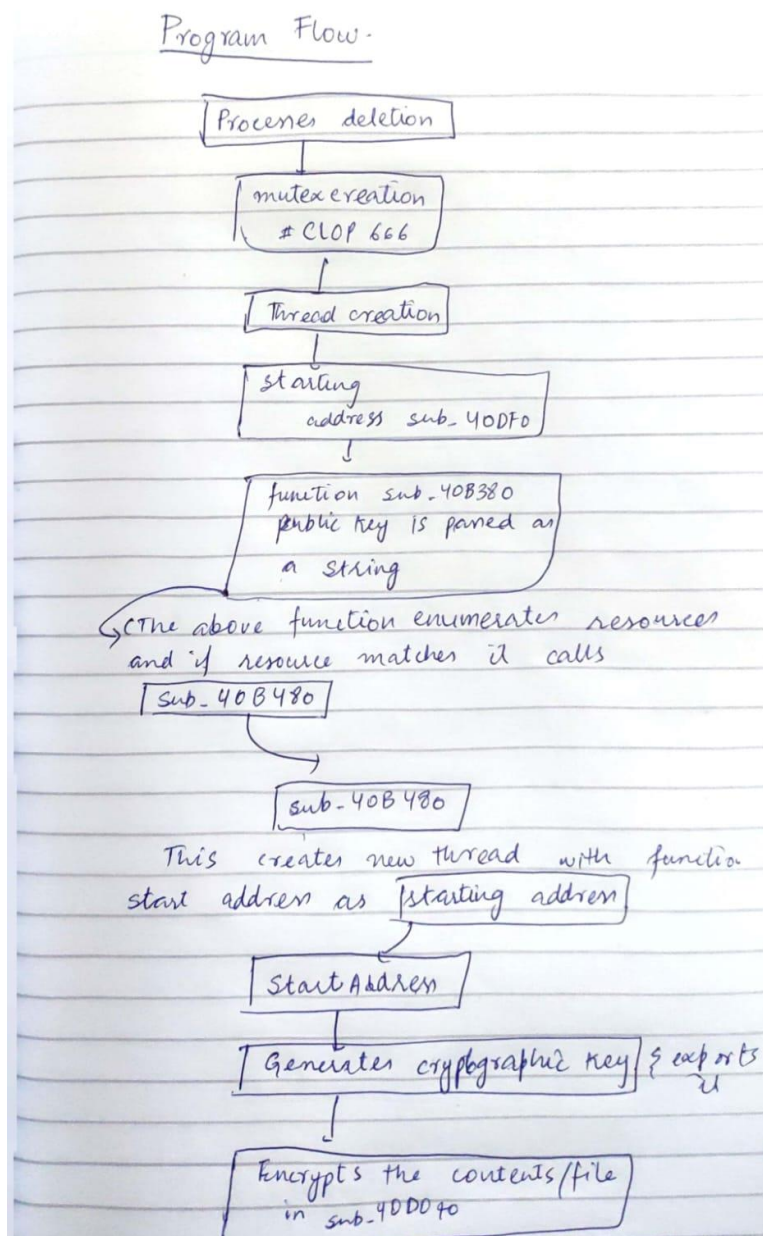 Program Flow.
Processes deletion
mutex creation
# CLOP 666
Thread creation
starting
address sub_40DF0
function sub_40B380
public key is passed as
a string
(The above function enumerates resources
and if resource matches it calls
sub_40B480
sub_40B480
This creates new thread with function
start address as starting address
Start Address
Generates cryptographic key & exports
it
Encrypts the contents/file
in sub_40D040